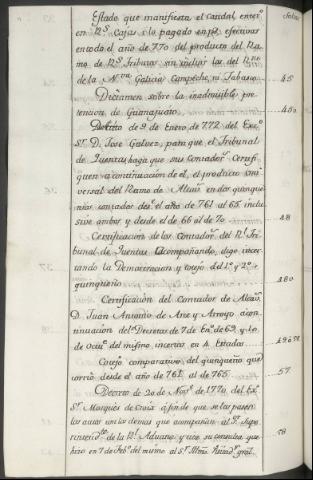 Folios
Estado que manifiesta el caudal, enter.º
en R.s Cajas, i lo pagado en efectivas
en todo el año de 770 del producto del Ra-
mo de R.s Tributos sin incluir los del R.no
de la N.va Galicia Campeche, ni Tabasco. 45
Dictamen sobre la inadmisible pre-
tencion de Guanajuato. 45
de 9 de Enero de 772 del Exc.mo
S.r D. José Galvez, para que el Tribunal
de Cuentas haga que sus Contador.s Certifi-
quen a continuacion de él, el producto uni-
versal del Ramo de Alcav.s en dos quinque-
nios contados des.e el año de 761 al 65 inclu-
sive ambos y desde el de 66 al de 70 48
Certificación de los Contador.s del R.l Tri-
bunal de Cuentas acompañando, digo incer-
tando la Demostracion y cotejo del 1.º y 2.º
quinquenio 480
Certificación del Contador de Alcav.s
D. Juan Antonio de Arce y Arroyo a con-
tinuacion del Decreto de 7 de En.º de 69 y 10
de Octu.e del mismo incerta en 4 Estados 49
Cotejo comparativo del quinqueño que
corrió desde el año de 761 al de 765 57
Decreto de 20 de Nov.e de 1770 del Ex.mo
S.r Marqués de Croix á fin de que se le pasen
los autos con los demas que acompañan al S.r Supe-
rintend.te de la R.l Aduana y vea su consulta que
hizo en 7 de Feb.º del mismo al S.r Yltmo. Visitad.r gral. 58